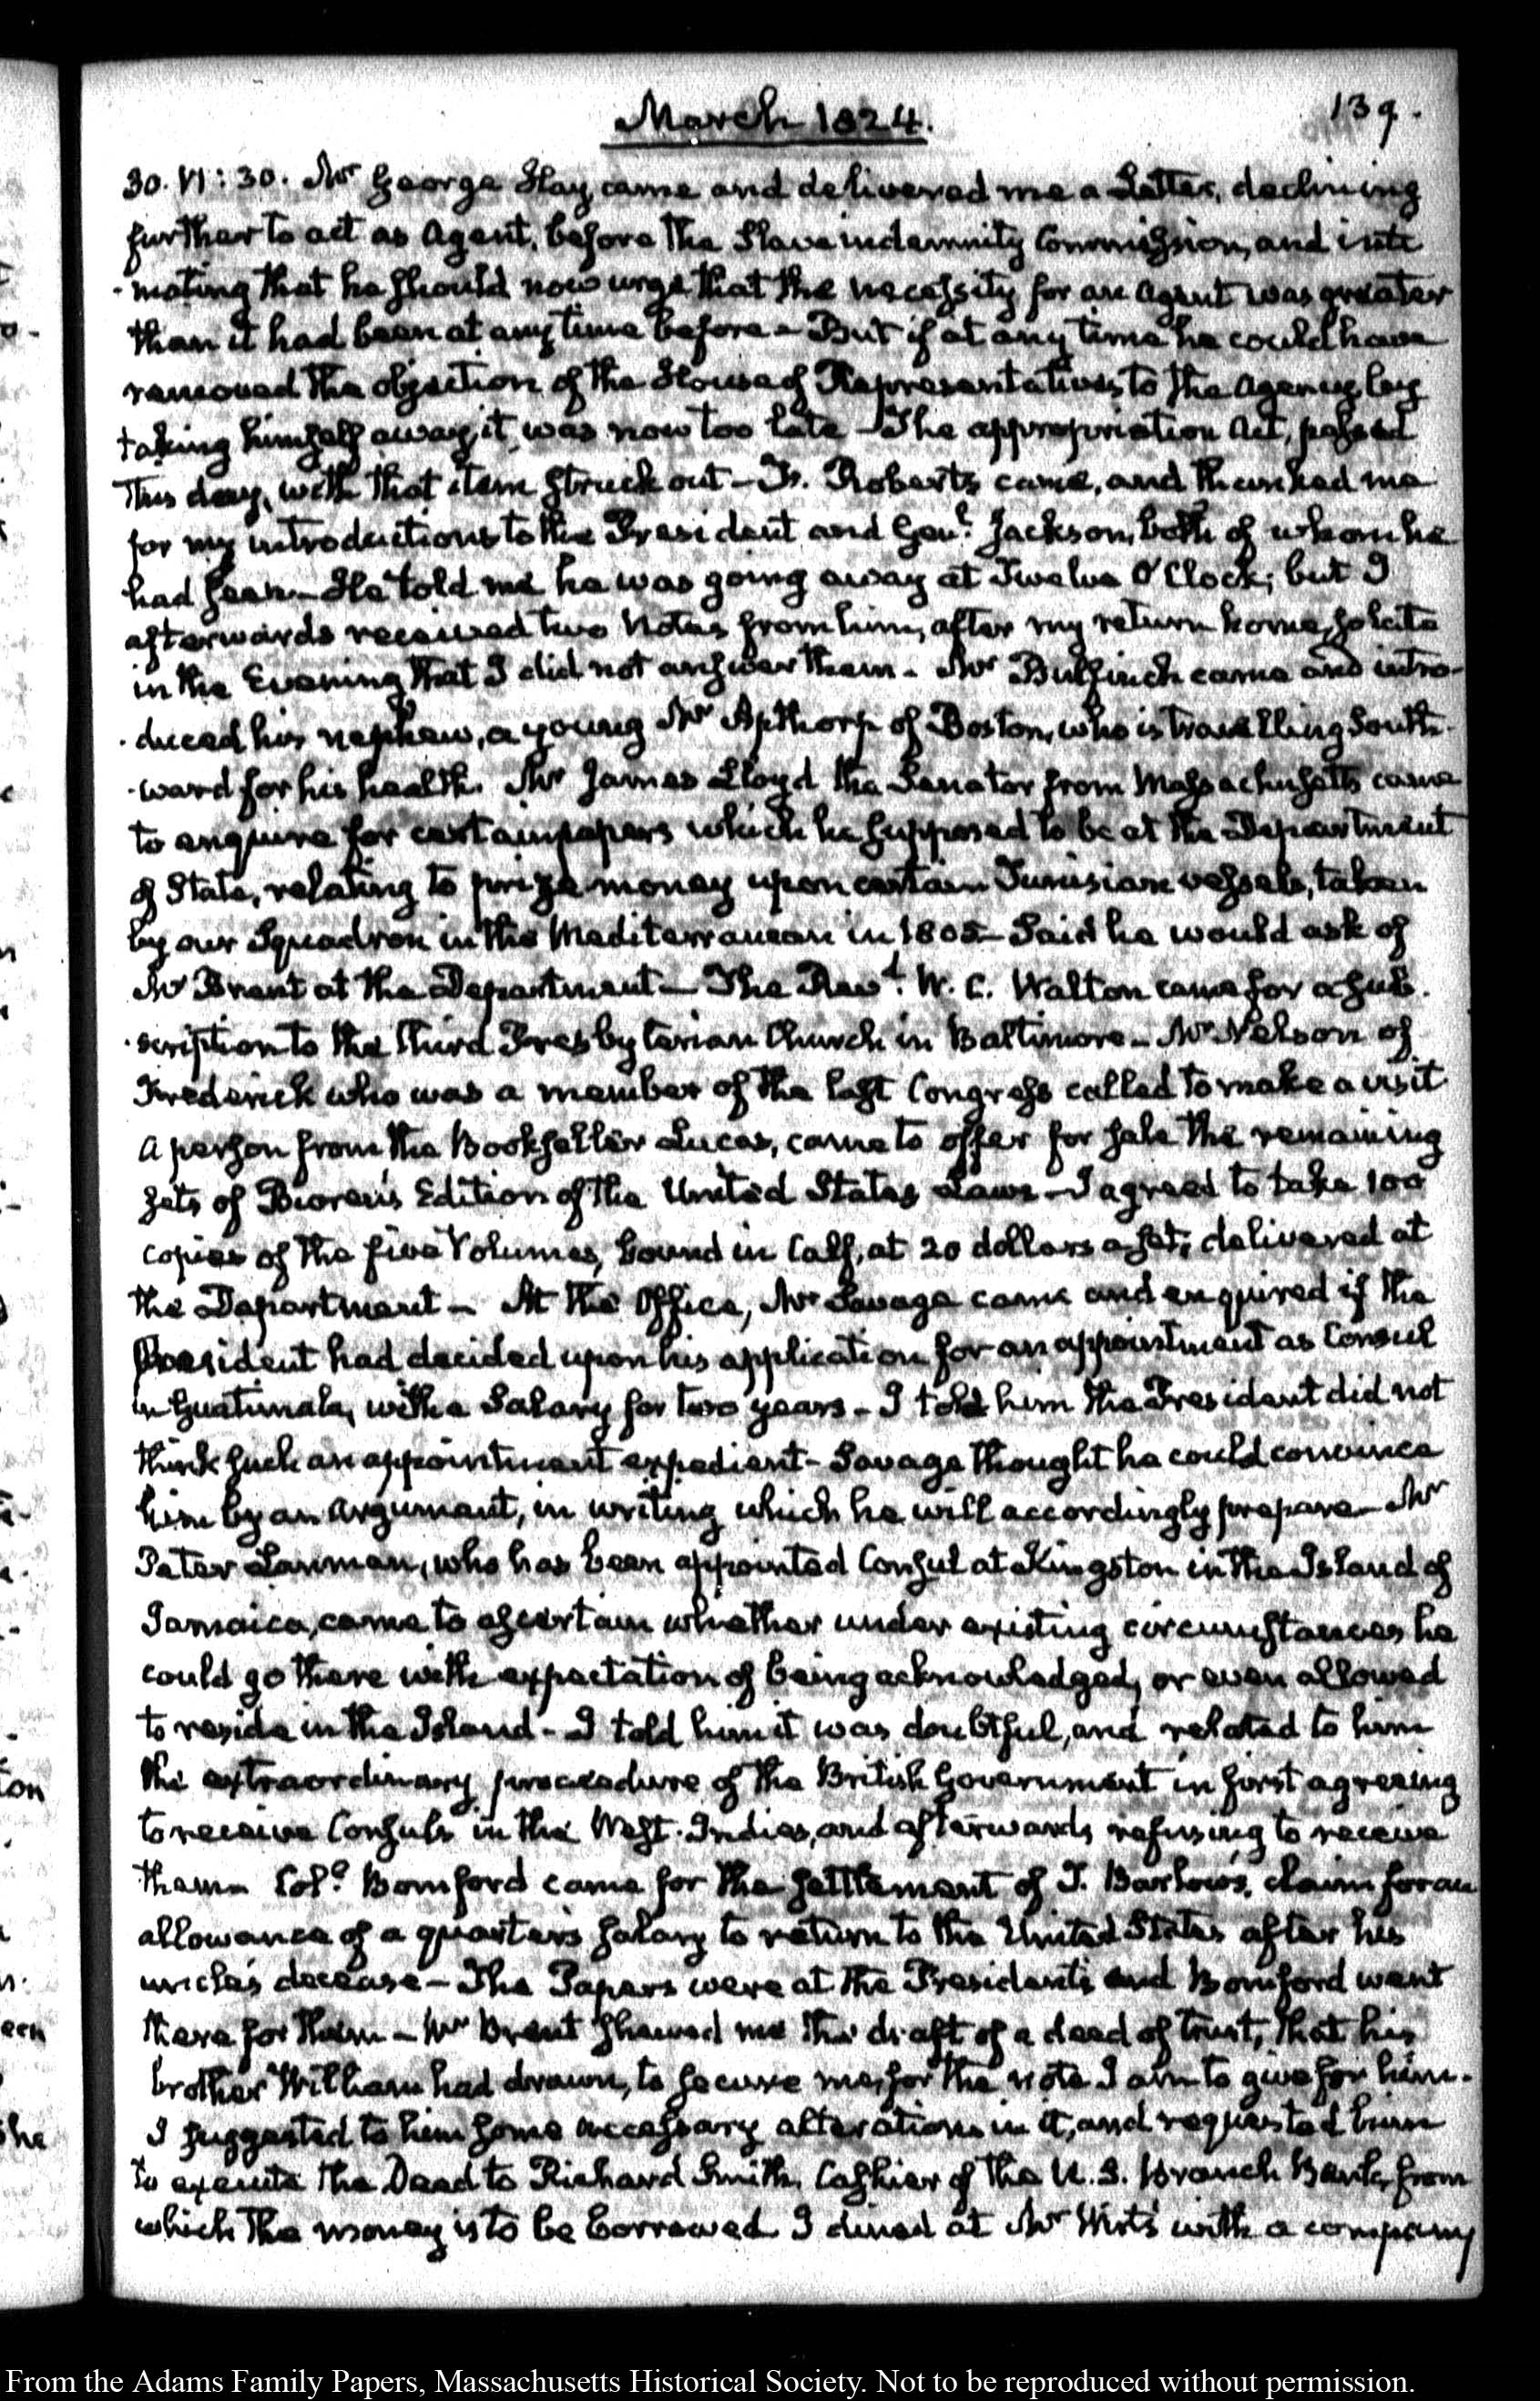 March 1824.
139.
30. VI: 30. Mr George Hay came and delivered me a Letter, declining
further to act as Agent, before the Slave indemnity Commission, and inti
-mating that he should now urge that the necessity for an Agent was greater
than it had been at any time before - But if at any time he could have
removed the objection of the House of Representatives to the Agency, by
taking himself away, it was now too late - The appropriation Act, passed
this day, with that item struck out - Roberts came, and thanked me
for my introductions to the President and Genl. Jackson, both of whom he
had seen - He told me he was going away at Twelve O'Clock; but I
afterwards received two Notes from him, after my return home, so late
in the Evening that I did not answer them - Mr Bulfinch came and intro-
-duced his nephew, a young Mr Apthorp of Boston, who is travelling South-
-ward for his health. Mr James Lloyd the Senator from Massachusetts came
to enquire for certain papers which he supposed to be at the Department
of State, relating to prize money upon certain Tunisian vessels, taken
by our Squadron in the Mediterranean in 1805 - Said he would ask of
Mr Brent at the Department - The Revd. W. C. Walton came for a sub-
-scription to the third Presbyterian Church in Baltimore - Mr Nelson of
Frederick who was a member of the last Congress called to make a visit
A person from the Bookseller Lucas, came to offer for sale the remaining
sets of Bioren's Edition of the United States Laws - I agreed to take 100
copies of the five Volumes, bound in Calf, at 20 dollars a set; delivered at
the Department - At the Office, Mr Savage came and enquired if the
President had decided upon his application for an appointment as Consul
in Guatimala, with a Salary for two years - I told him the President did not
think such an appointment expedient - Savage thought he could convince
him by an argument, in writing which he will accordingly prepare - Mr
Peter Lanman, who has been appointed Consul at Kingston in the Island of
Jamaica, came to ascertain whether under existing circumstances he
could go there with expectation of being acknowledged, or even allowed
to reside in the Island - I told him it was doubtful, and related to him
the extraordinary procedure of the British Government in first agreeing
to receive Consuls in the West-Indies, and afterwards refusing to receive
them - Coll. Bomford came for the settlement of T. Barlow's, claim for an
allowance of a quarter's salary to return to the United States after his
uncle's decease - The Papers were at the President's and Bomford went
there for them - Mr Brent shewed me the draft of a deed of trust, that his
brother William had drawn, to secure me, for the note I am to give for him.
I suggested to him some necessary alterations in it, and requested him
to execute the Deed to Richard Smith, Cashier of the U.S. Branch Bank, from
which the money is to be borrowed I dined at Mr Wirt's with a company
From the Adams Family Papers, Massachusetts Historical Society. Not to be reproduced without permission.